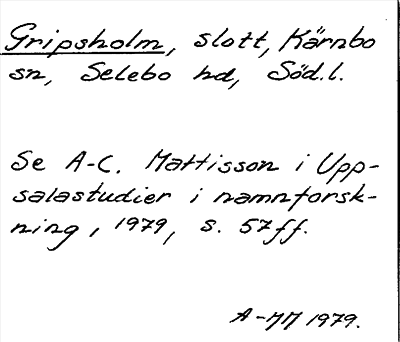 Gripsholm, slott, Kärnbo
sn, Selebo hd, Söd.l.
Se A-C. Mattisson i Upp-
salastudier i namnforsk-
ning, 1979, s. 57ff.
A-MM 1979.